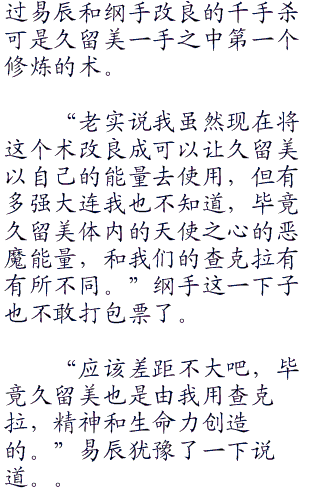 过易辰和纲手改良的千手杀
可是久留美一手之中第一个
修炼的术。
“老实说我虽然现在将
这个术改良成可以让久留美
以自己的能量去使用，但有
多强大连我也不知道，毕竟
久留美体内的天使之心的恶
魔能量，和我们的查克拉有
有所不同。”纲手这一下子
也不敢打包票了。
“应该差距不大吧，毕
竟久留美也是由我用查克
拉，精神和生命力创造
的。”易辰犹豫了一下说
道。。